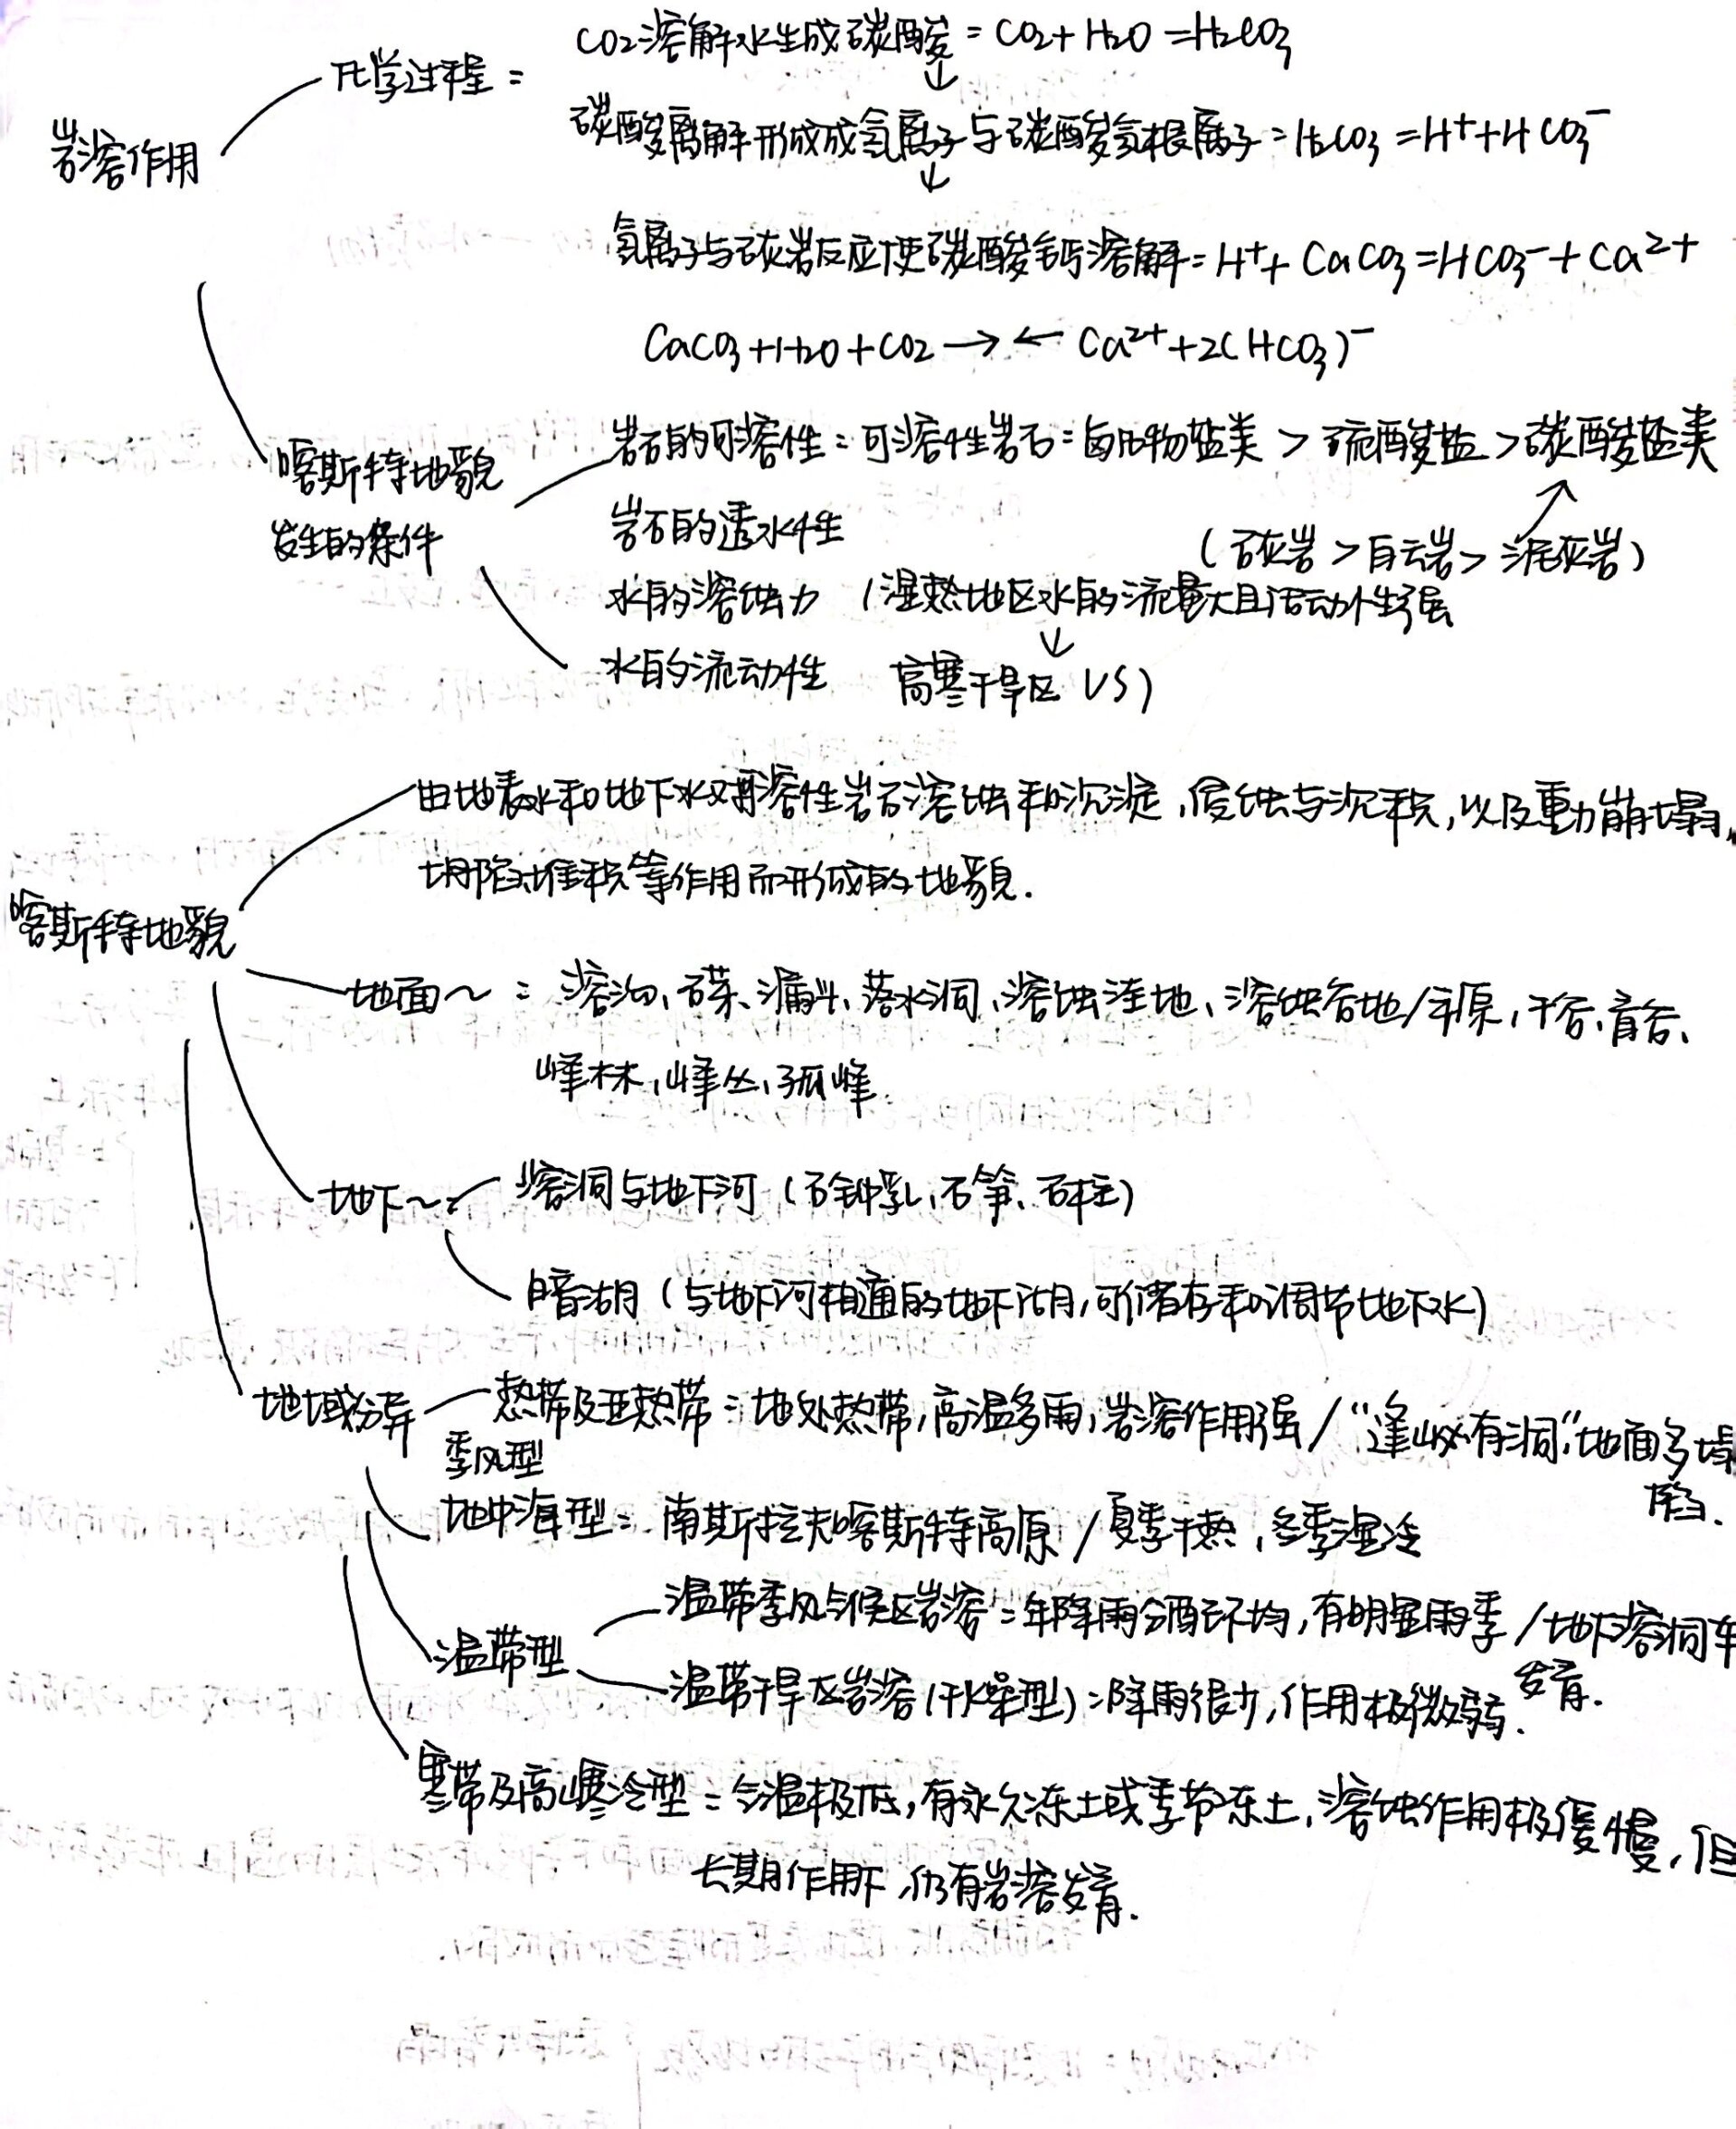 CO2溶解水生成碳酸：CO2+H2O=H2CO3
↓
化学过程：
碳酸离解形成成氢离子与碳酸氢根离子：H2CO3=H⁺+HCO3⁻
岩溶作用
↓
氢离子与石灰岩反应使碳酸钙溶解：H⁺+CaCO3=HCO3⁻+Ca²⁺
CaCO3+H2O+CO2→←Ca²⁺+2(HCO3)⁻
岩石的可溶性：可溶性岩石：卤化物盐类＞硫酸盐＞碳酸盐类
喀斯特地貌
发生的条件
岩石的透水性
（石灰岩＞白云岩＞泥灰岩）
水的溶蚀力（湿热地区水的流量大且活动性强
↓
水的流动性 高寒干旱区 VS）
由地表水和地下水对可溶性岩石溶蚀和沉淀，侵蚀与沉积，以及重力崩塌、
塌陷、堆积等作用而形成的地貌.
喀斯特地貌
地面～：溶沟、石芽、漏斗、落水洞、溶蚀洼地、溶蚀谷地/平原，干谷、盲谷、
峰林，峰丛，孤峰
地下～：溶洞与地下河（石钟乳，石笋、石柱）
暗湖（与地下河相通的地下湖，可储存和调节地下水）
地域分异 热带及亚热带：地处热带，高温多雨，岩溶作用强/“逢山必有洞”地面多塌
季风型
陷.
地中海型：南斯拉夫喀斯特高原/夏季干热，冬季湿冷
温带季风气候区岩溶：年降雨分配不均，有明显雨季/地下溶洞
温带型
发育.
温带干旱区岩溶（干燥型）：降雨很少，作用极微弱.
寒带及高山寒冷型：气温极低，有永久冻土或季节冻土，溶蚀作用极缓慢，但
长期作用下，仍有岩溶发育.